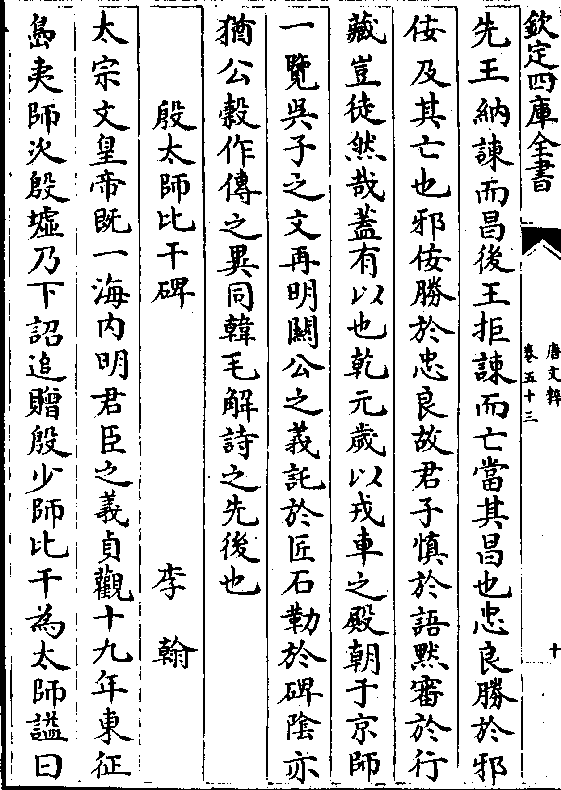 欽定四庫全書
唐文粹
卷五十三
十
先王納諫而昌後王拒諫而亡當其昌也忠良勝於邪
佞及其亡也邪佞勝於忠良故君子慎於語黙審於行
藏豈徒然哉蓋有以也乾元歲以戎車之殿朝于京師
一覽吳子之文再明闕公之義託於匠石勒於碑陰亦
猶公穀作傳之異同韓毛解詩之先後也
殷太師比干碑 李翰
太宗文皇帝旣一海內明君臣之義貞觀十九年東征
島夷師次殷墟乃下詔追贈殷少師比干為太師諡曰